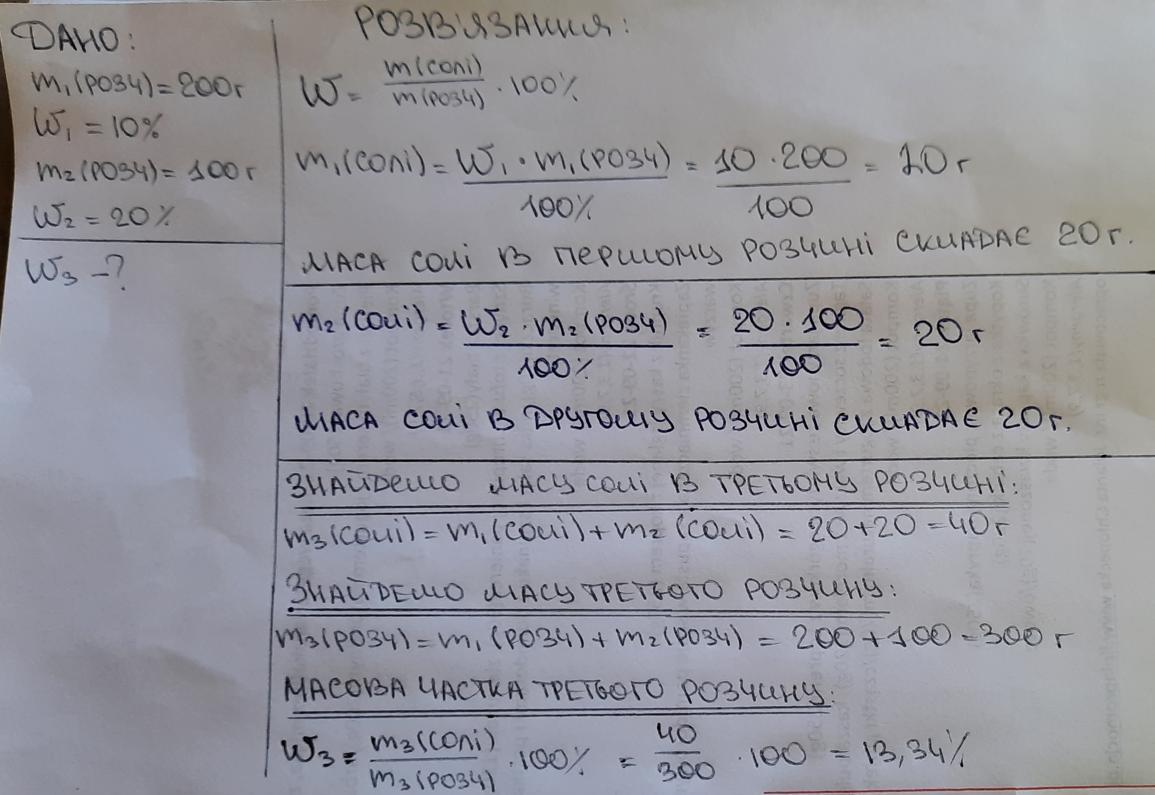 ДАНО:
m₁(РОЗЧ)=200г
W₁=10%
m₂(РОЗЧ)=100г
W₂=20%
W₃-?
РОЗВ'ЯЗАННЯ:
W = m(солі)/m(розч) · 100%
m₁(солі) = W₁·m₁(РОЗЧ)/100% = 10·200/100 = 20г
МАСА СОЛІ В ПЕРШОМУ РОЗЧИНІ СКЛАДАЄ 20г.
m₂(солі) = W₂·m₂(РОЗЧ)/100% = 20·100/100 = 20г
МАСА СОЛІ В ДРУГОМУ РОЗЧИНІ СКЛАДАЄ 20г.
ЗНАЙДЕМО МАСУ СОЛІ В ТРЕТЬОМУ РОЗЧИНІ:
m₃(солі)=m₁(солі)+m₂(солі)=20+20=40г
ЗНАЙДЕМО МАСУ ТРЕТЬОГО РОЗЧИНУ:
m₃(РОЗЧ)=m₁(РОЗЧ)+m₂(РОЗЧ)=200+100=300г
МАСОВА ЧАСТКА ТРЕТЬОГО РОЗЧИНУ:
W₃ = m₃(солі)/m₃(РОЗЧ) · 100% = 40/300 · 100 = 13,34%